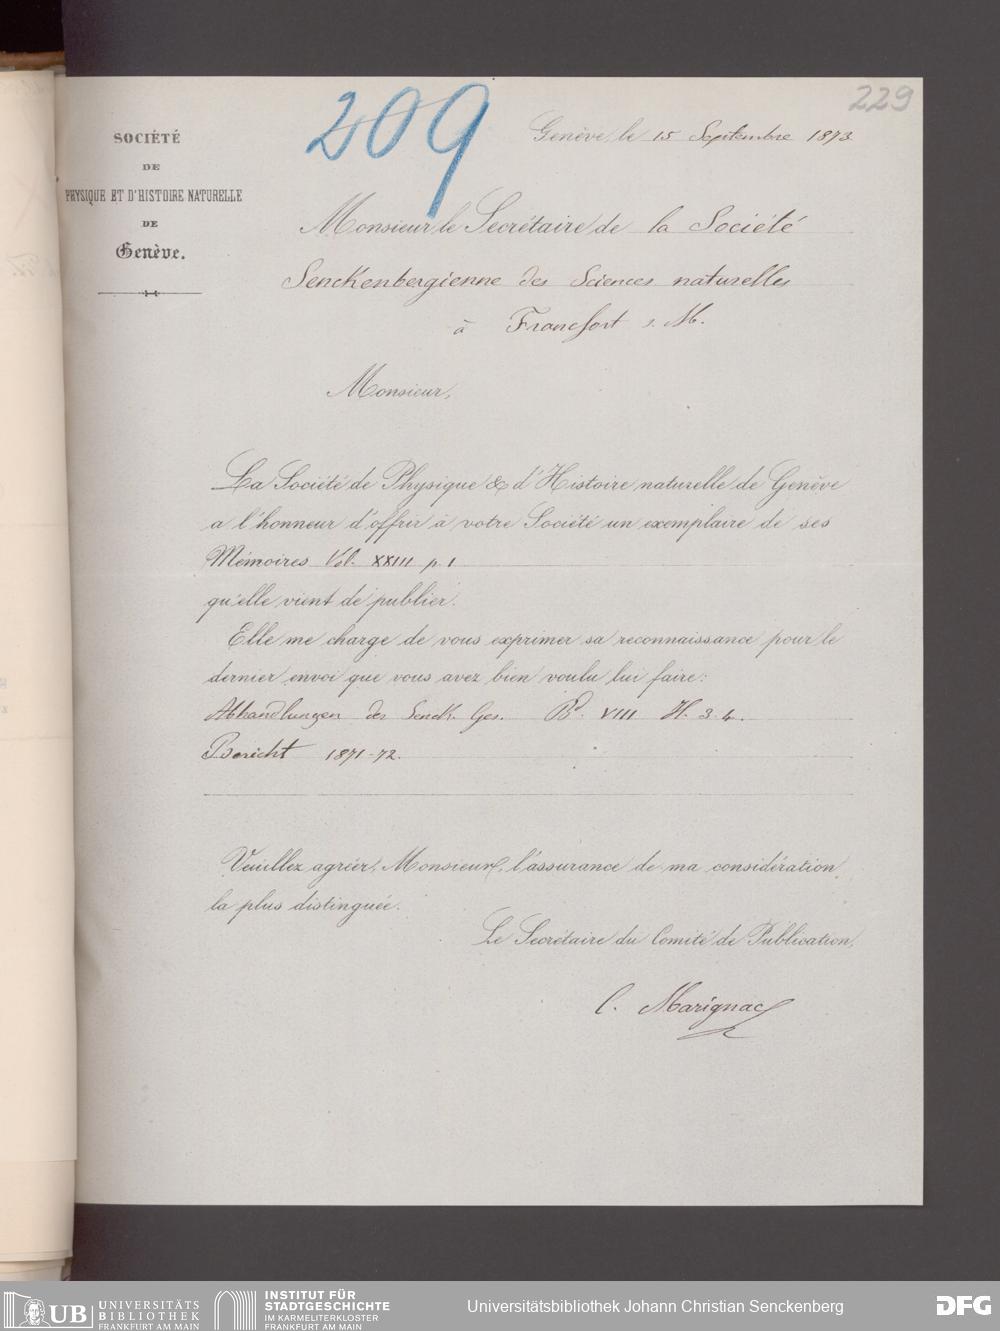 229
209
SOCIÉTÉ
DE
PHYSIQUE ET D'HISTOIRE NATURELLE
DE
Genève.
Genève, le 15 Septembre 1873
Monsieur le Secrétaire de la Société
Senckenbergienne des Sciences naturelles
à Francfort s. M.
Monsieur,
La Société de Physique & d'Histoire naturelle de Genève
a l'honneur d'offrir à votre Société un exemplaire de ses
Mémoires Vol. XXIII p. 1
qu'elle vient de publier.
Elle me charge de vous exprimer sa reconnaissance pour le
dernier envoi que vous avez bien voulu lui faire:
Abhandlungen der Senck. Ges. Bd. VIII H. 3. 4.
Bericht 1871-72.
Veuillez agréer, Monsieur, l'assurance de ma considération
la plus distinguée.
Le Secrétaire du Comité de Publication,
C. Marignac
UB UNIVERSITÄTS
BIBLIOTHEK
FRANKFURT AM MAIN
INSTITUT FÜR
STADTGESCHICHTE
IM KARMELITERKLOSTER
FRANKFURT AM MAIN
Universitätsbibliothek Johann Christian Senckenberg
DFG